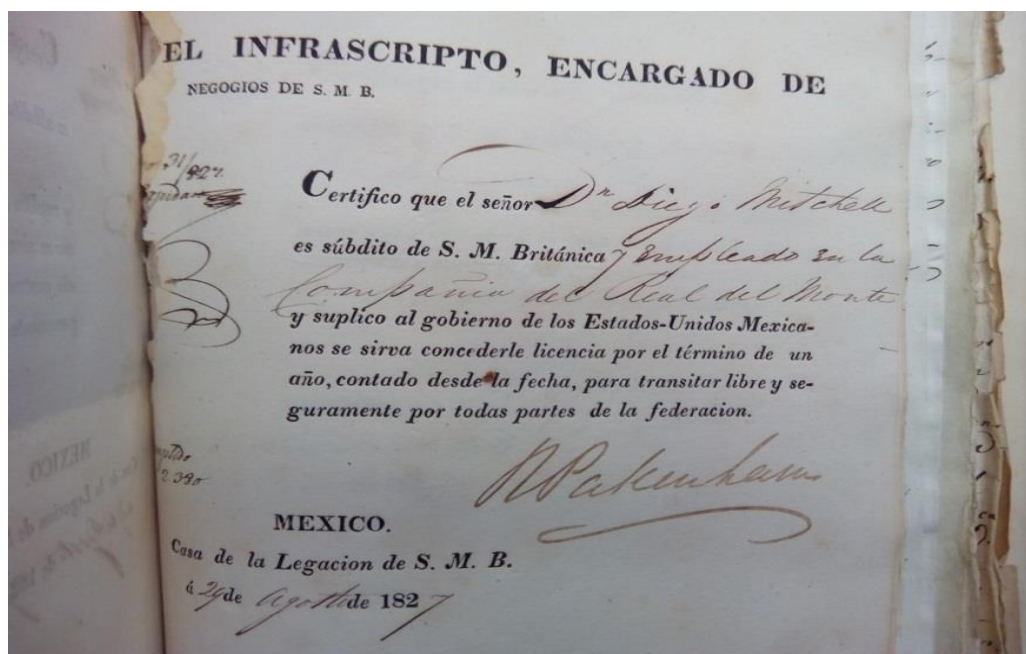 EL INFRASCRIPTO, ENCARGADO DE
NEGOGIOS DE S. M. B.
31/827.
Certifico que el señor Dn Diego Mitchell
es súbdito de S. M. Británica y empleado en la
Compañia del Real del Monte
y suplico al gobierno de los Estados-Unidos Mexica-
nos se sirva concederle licencia por el término de un
año, contado desde la fecha, para transitar libre y se-
guramente por todas partes de la federacion.
R Pakenham
2.380
MEXICO.
Casa de la Legacion de S. M. B.
á 29 de Agosto de 1827
MEXICO.